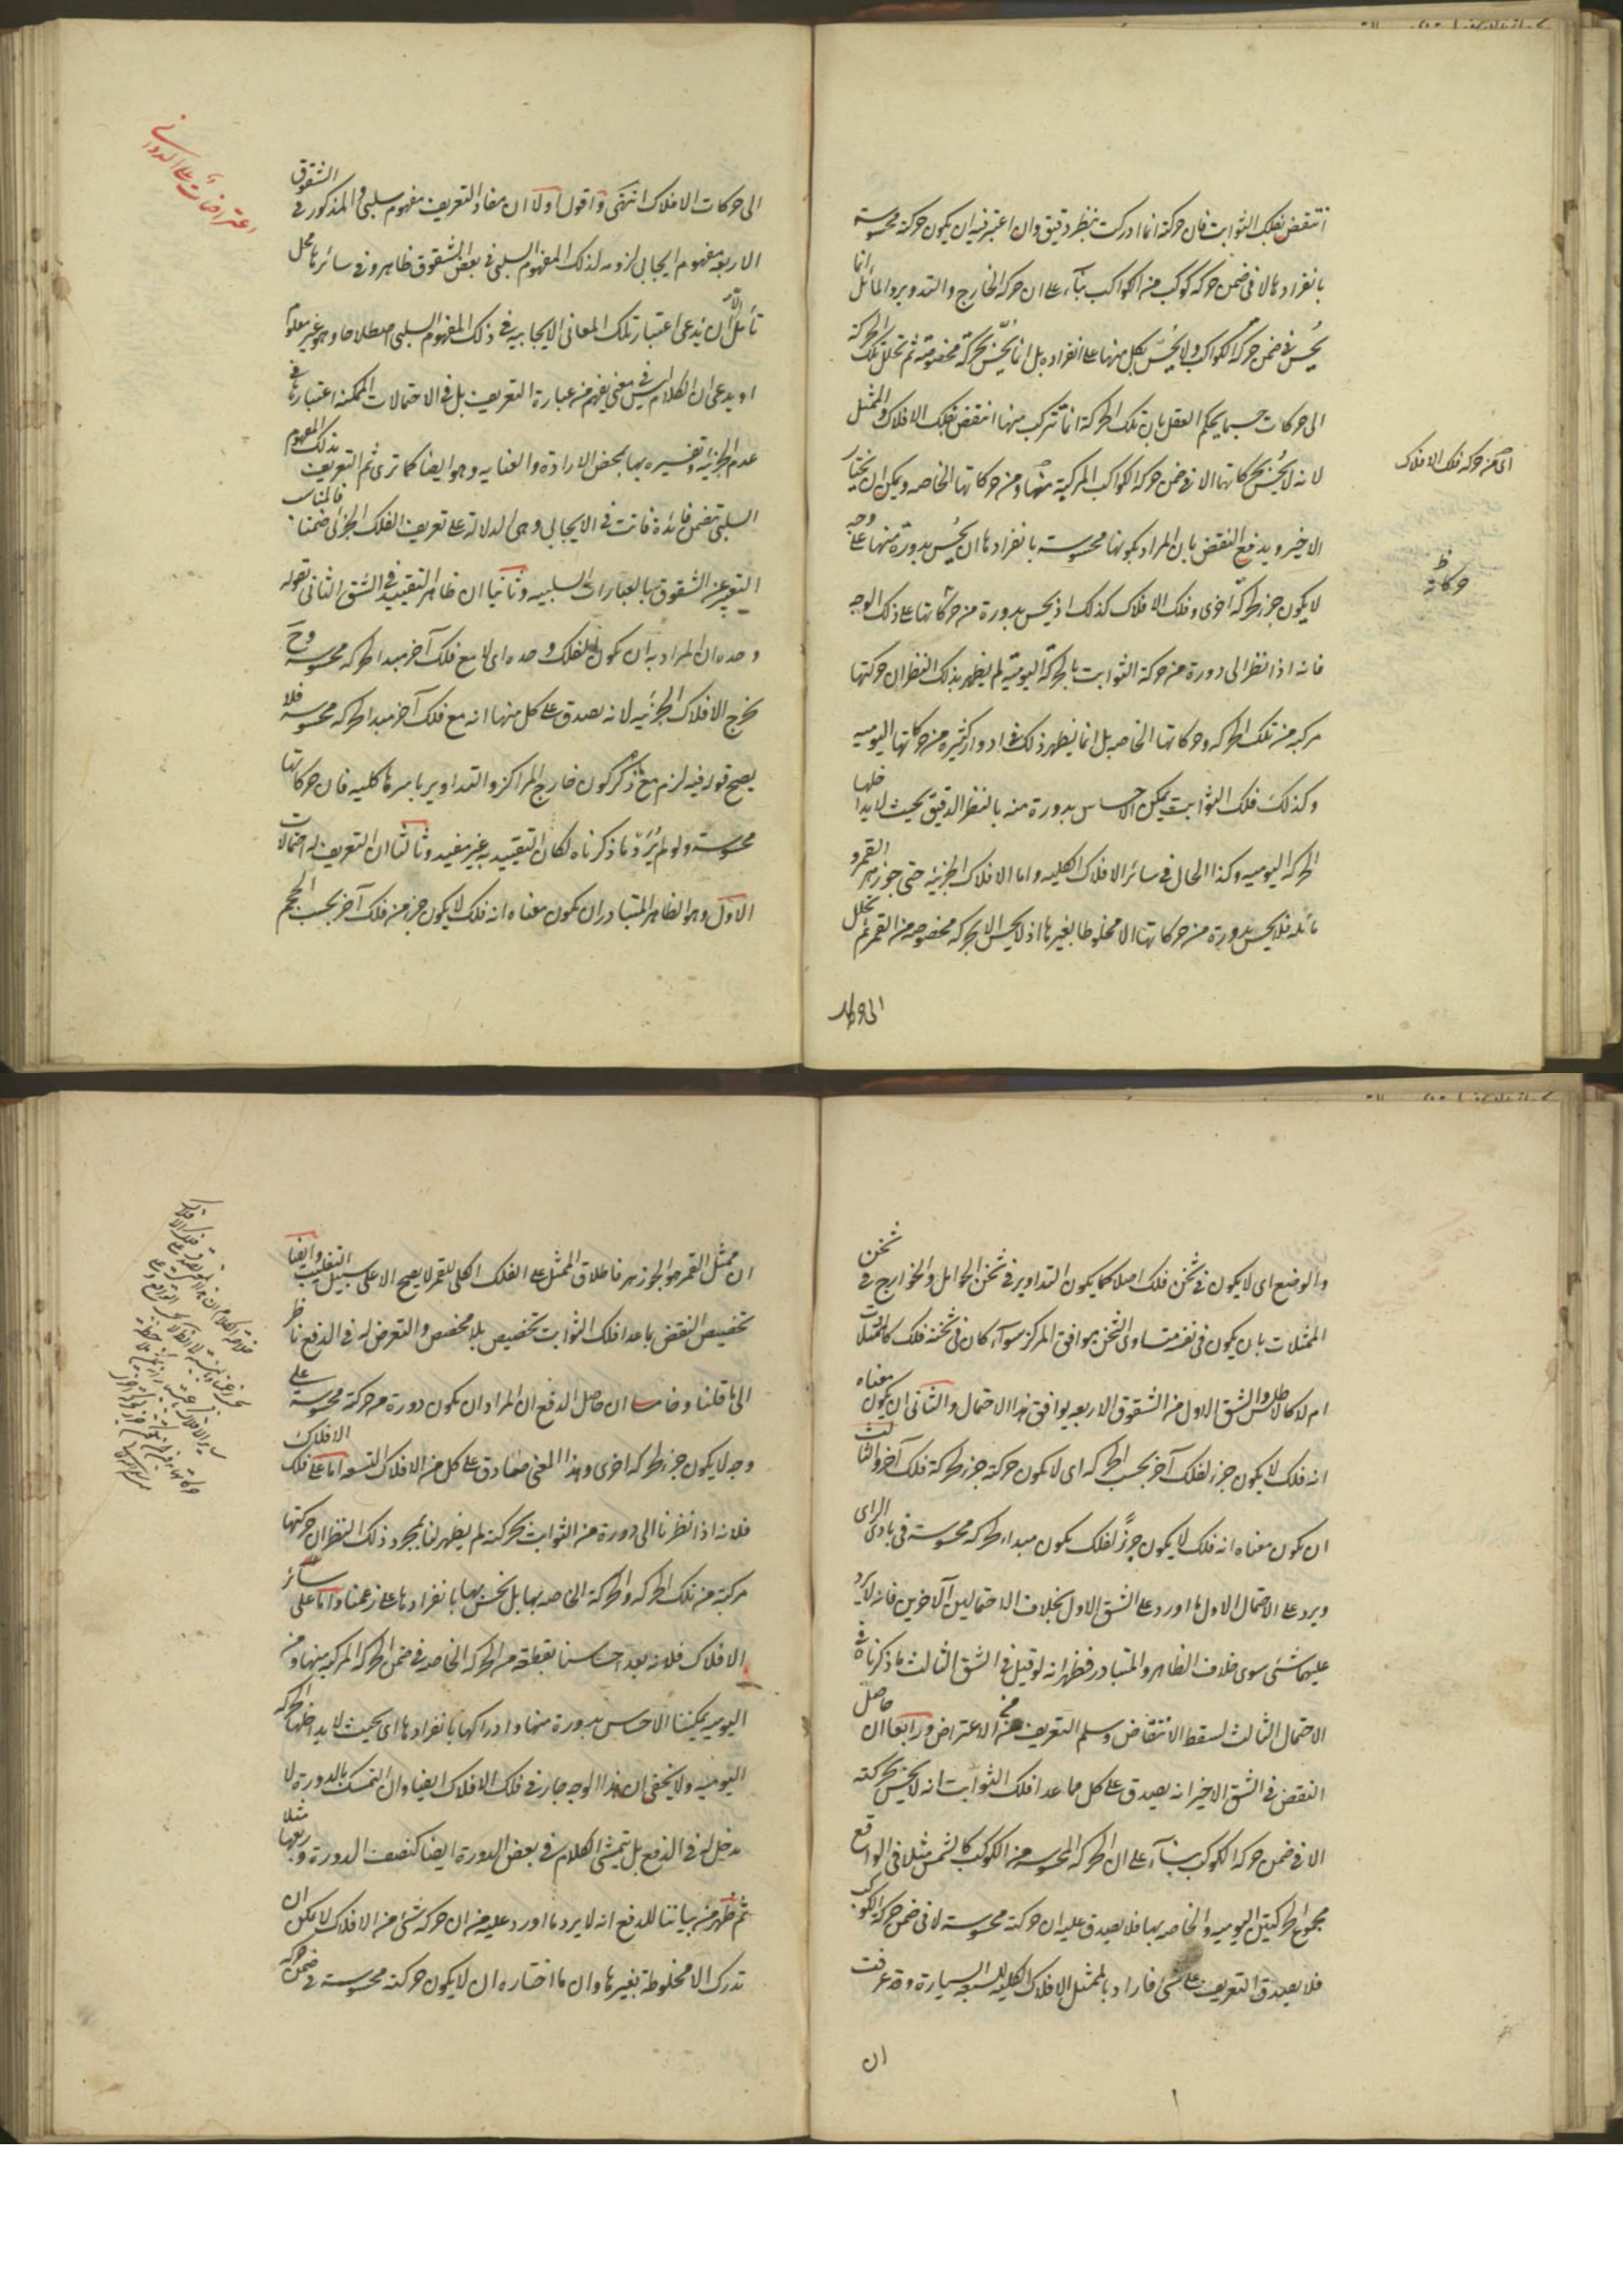 انتقض بفلك الثوابت فان حركته انما ادركت بنظر دقيق وان اعتبر فيه ان يكون حركته محسوسة
بانفرادها لا فى ضمن حركة كوكب من الكواكب بناء على ان حركة الخارج والتدوير والمائل انما
يُحس فى ضمن حركة الكواكب ولا يُحس بكل منها على انفراده بل انما يُحس بحركة مخصوصة ثم تحلل تلك الحركة
الى حركات حسبما يحكم العقل بان تلك الحركة انما تتركب منها انتقض بفلك الافلاك والممثل
لانه لا يُحس بحركاتهما الا فى ضمن حركة الكواكب المركبة منها ومن حركاتها الخاصه ويمكن ان يختار
الاخير ويدفع النقض بان المراد بكونها محسوسة بانفرادها ان يُحس بدورة منها على وجه
لا يكون جزء لحركة اخرى وفلك الافلاك كذلك اذ يحس بدورة من حركاتها على ذلك الوجه
فانه اذا نظر الى دورة من حركة الثوابت بالحركة اليومية لم يظهر بذلك النظر ان حركتها
مركبه من تلك الحركه وحركاتها الخاصه بل انما يظهر ذلك فى ادوار كثيرة من حركاتها اليوميه
وكذلك فلك الثوابت يمكن الاحساس بدورة منه بالنظر الدقيق بحيث لا يداخلها
الحركة اليوميه وكذا الحال فى سائر الافلاك الكليه واما الافلاك الجزئيه حتى جوزهر القمر و
مائله فلا يحس بدورة من حركاتها الا مخلوطا بغيرها اذ لا يحس الا بحركه مخصوصه من القمر ثم تحلل
اى من حركة فلك الافلاك
حركاته ظ
الى حركات الافلاك انتهى واقول اولا ان مفاد التعريف مفهوم سلبى والمذكور فى الشقوق
الاربعه مفهوم ايجابى لزومه لذلك المفهوم السلبى فى بعض الشقوق ظاهر وفى سائرها محل
تأمل الا ان يدعى اعتبار تلك المعانى الايجابيه فى ذلك المفهوم السلبى اصطلاحا وهو غير معلوم
او يدعى ان الكلام ليس فى معنى يفهم من عبارة التعريف بل فى الاحتمالات الممكنه اعتبارها فى
عدم الجزئيه وتفسيره بها بمحض الارادة والعنايه وهو ايضا كما ترى ثم التعريف بذلك المفهوم
السلبى تتضمن فائدة فاتت فى الايجابى وهى الدلالة على تعريف الفلك الجزئى ضمنا فالمناسب
التعبير عن الشقوق بالعبارات السلبيه وثانيا ان ظاهر التقييد فى الشق الثانى بقوله
وحده ان المراد به ان يكون الفلك وحده اى لا مع فلك آخر مبدا لحركه محسوسة وح
يخرج الافلاك الجزئيه لانه يصدق على كل منها انه مع فلك آخر مبدا لحركه محسوسة فلا
يصح قوله فيه لزم مع ذكر كون خارج المراكز والتداوير باسرها كليه فان حركاتها
محسوسة ولو لم يُرَدْ ما ذكرناه لكان التقييد به غير مفيد وثالثا ان التعريف له احتمالات
الاول وهو الظاهر المتبادر ان يكون معناه انه فلك لا يكون جزء من فلك آخر بحسب الحجم
اعتراضات على الدوانى
والوضع اى لا يكون فى ثخن فلك اصلا كما يكون التداوير فى ثخن الحوامل والخوارج فى ثخن
الممثلات بان يكون فى نفسه متساوى الثخن موافق المركز سواء كان فى ثخنه فلك كالممثلات
ام لا كالاطلس والشق الاول من الشقوق الاربعه يوافق هذا الاحتمال والثانى ان يكون معناه
انه فلك لا يكون جزء لفلك آخر بحسب الحركه اى لا يكون حركته جزء لحركة فلك آخر والثالث
ان يكون معناه انه فلك لا يكون جزءً لفلك يكون مبداء لحركه محسوسة فى بادى الراى
ويرد على الاحتمال الاول ما اورد على الشق الاول بخلاف الاحتمالين الآخرين فانه لا يرد
عليهما شئ سوى خلاف الظاهر والمتبادر فظهر انه لو قيل فى الشق الثالث ما ذكرناه فى
الاحتمال الثالث لسقط الانتقاض وسلم التعريف من الاعتراض ورابعا ان حاصل
النقض فى الشق الاخير انه يصدق على كل ما عدا فلك الثوابت انه لا يحس بحركته
الا فى ضمن حركة الكوكب بناء على ان الحركة المحسوسة من الكوكب كالشمس مثلا فى الواقع
مجموع الحركتين اليوميه والخاصه بها فلا يصدق عليه ان حركته محسوسة لا فى ضمن حركة الكوكب
فلا يصدق التعريف على شئ فاراد بالممثل الافلاك الكليه للسبعه السيارة وقد عرفت
ان
ان ممثل القمر هو الجوزهر فاطلاق الممثل على الفلك الكلى للقمر لا يصح الا على سبيل التغليب وايضا
تخصيص النقض بما عدا فلك الثوابت تخصيص بلا مخصص والتعرض له فى الدفع ناظر
الى ما قلنا وخامسا ان حاصل الدفع ان المراد ان يكون دورة من حركته محسوسة على
وجه لا يكون جزء لحركه اخرى وهذا المعنى صادق على كل من الافلاك التسعه اما على فلك الافلاك
فلانه اذا نظرنا الى دورة من الثوابت بحركته لم يظهر لنا بمجرد ذلك النظر ان حركتها
مركبة من تلك الحركه والحركة الخاصه بها بل نحس بها بانفرادها على زعمنا واما على سائر
الافلاك فلانه بعد احساسنا بقطعة من الحركه الخاصه فى ضمن الحركه المركبه منها ومن
اليوميه يمكننا الاحساس بدورة منها وادراكها بانفرادها اى بحيث لا يداخلها الحركه
اليومية ولا يخفى ان هذا الوجه جار فى فلك الافلاك ايضا وان التمسك بالدورة لا
مدخل له فى الدفع بل يتمشى الكلام فى بعض الدورة ايضا كنصف الدورة وربعها مثلا
ثم ظهر من بياننا للدفع انه لا يرد ما اورد عليه من ان حركة شئ من الافلاك لا يمكن ان
تدرك الا مخلوطة بغيرها وان ما اختاره ان لا يكون حركته محسوسة فى ضمن حركه